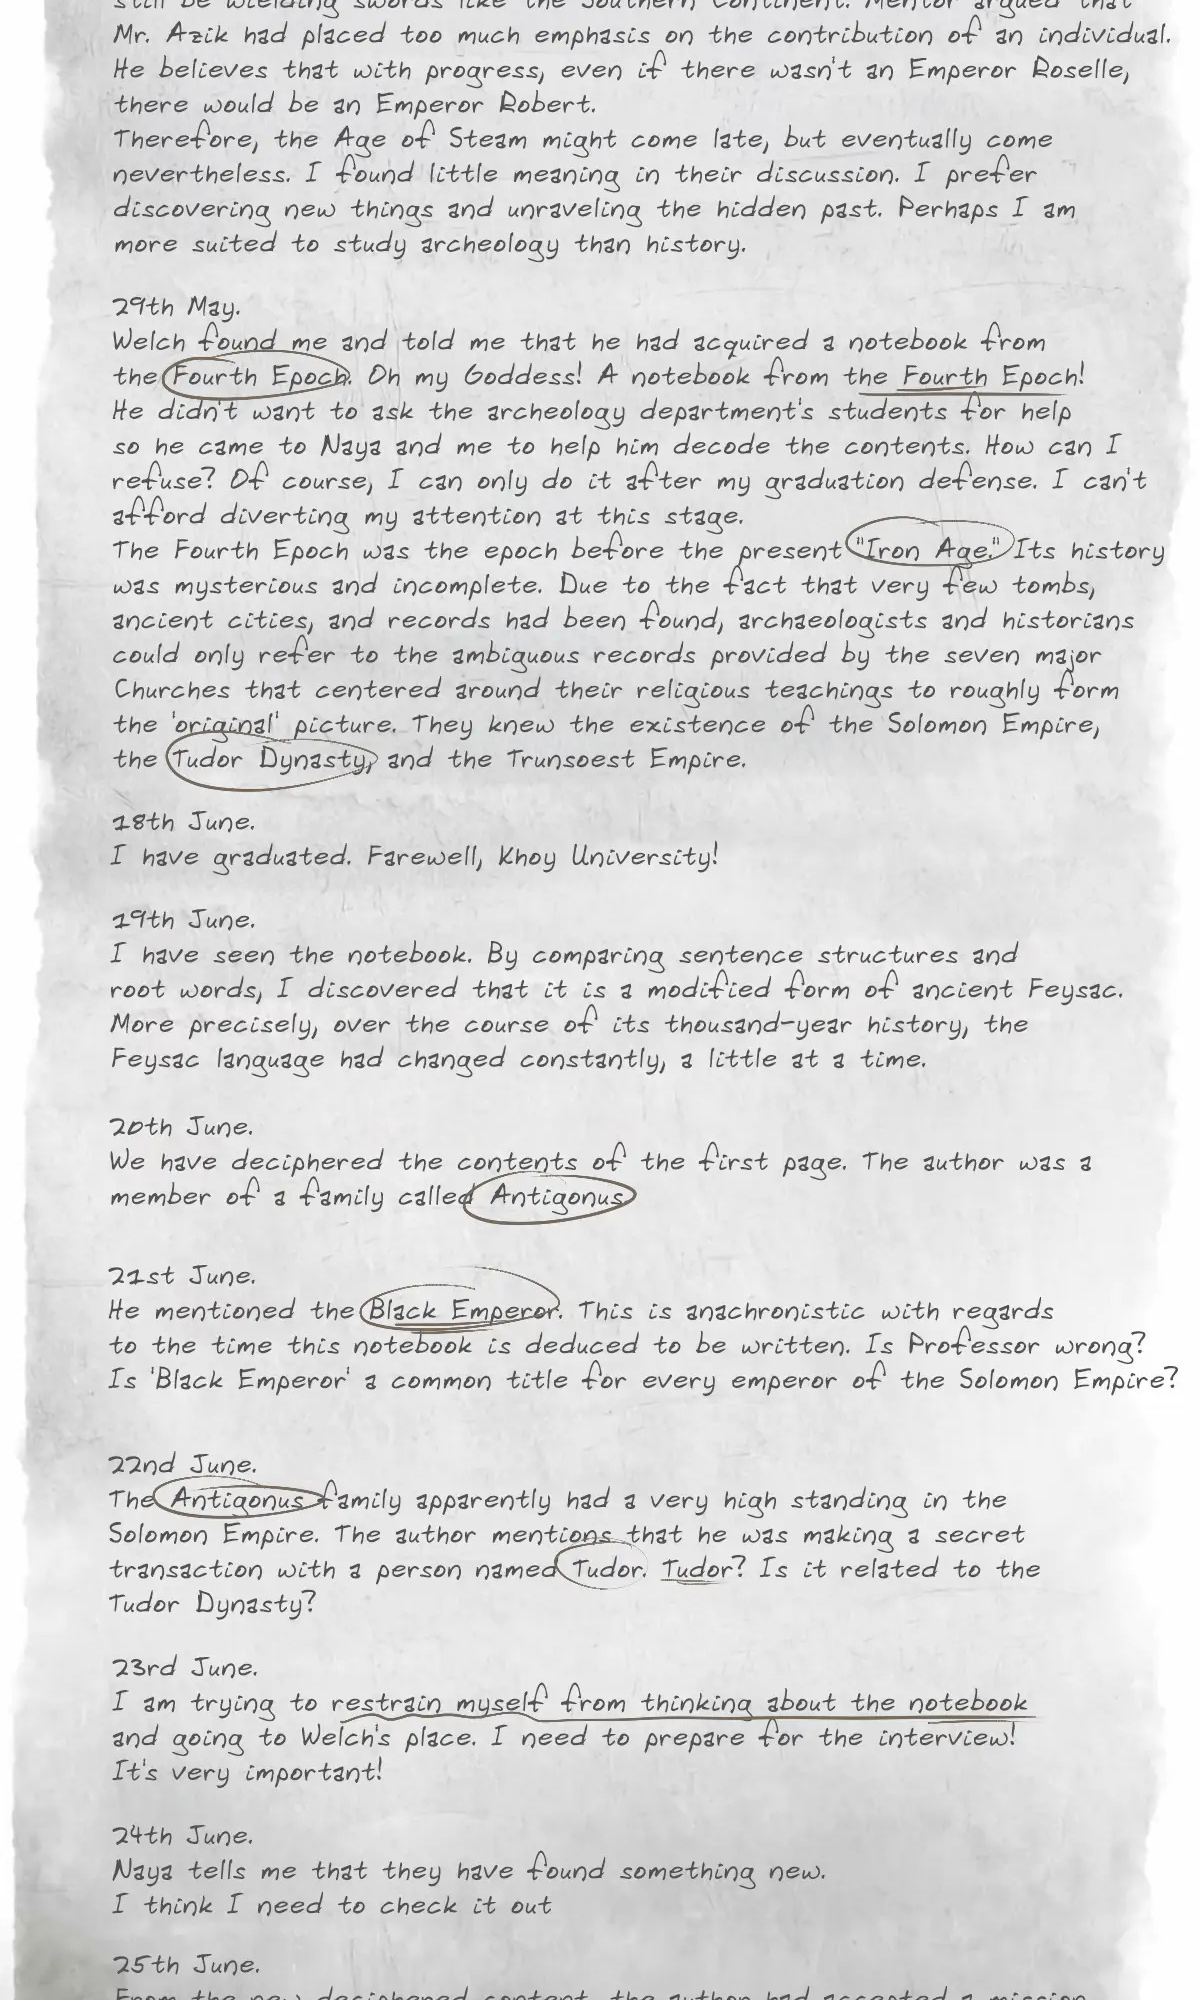 still be wielding swords like the Southern Continent. Mentor argued that
Mr. Azik had placed too much emphasis on the contribution of an individual.
He believes that with progress, even if there wasn't an Emperor Roselle,
there would be an Emperor Robert.
Therefore, the Age of Steam might come late, but eventually come
nevertheless. I found little meaning in their discussion. I prefer
discovering new things and unraveling the hidden past. Perhaps I am
more suited to study archeology than history.
29th May.
Welch found me and told me that he had acquired a notebook from
the Fourth Epoch. Oh my Goddess! A notebook from the Fourth Epoch!
He didn't want to ask the archeology department's students for help
so he came to Naya and me to help him decode the contents. How can I
refuse? Of course, I can only do it after my graduation defense. I can't
afford diverting my attention at this stage.
The Fourth Epoch was the epoch before the present "Iron Age." Its history
was mysterious and incomplete. Due to the fact that very few tombs,
ancient cities, and records had been found, archaeologists and historians
could only refer to the ambiguous records provided by the seven major
Churches that centered around their religious teachings to roughly form
the 'original' picture. They knew the existence of the Solomon Empire,
the Tudor Dynasty, and the Trunsoest Empire.
18th June.
I have graduated. Farewell, Khoy University!
19th June.
I have seen the notebook. By comparing sentence structures and
root words, I discovered that it is a modified form of ancient Feysac.
More precisely, over the course of its thousand-year history, the
Feysac language had changed constantly, a little at a time.
20th June.
We have deciphered the contents of the first page. The author was a
member of a family called Antigonus
21st June.
He mentioned the Black Emperor. This is anachronistic with regards
to the time this notebook is deduced to be written. Is Professor wrong?
Is 'Black Emperor' a common title for every emperor of the Solomon Empire?
22nd June.
The Antigonus family apparently had a very high standing in the
Solomon Empire. The author mentions that he was making a secret
transaction with a person named Tudor. Tudor? Is it related to the
Tudor Dynasty?
23rd June.
I am trying to restrain myself from thinking about the notebook
and going to Welch's place. I need to prepare for the interview!
It's very important!
24th June.
Naya tells me that they have found something new.
I think I need to check it out
25th June.
From the new deciphered content, the author had accepted a mission